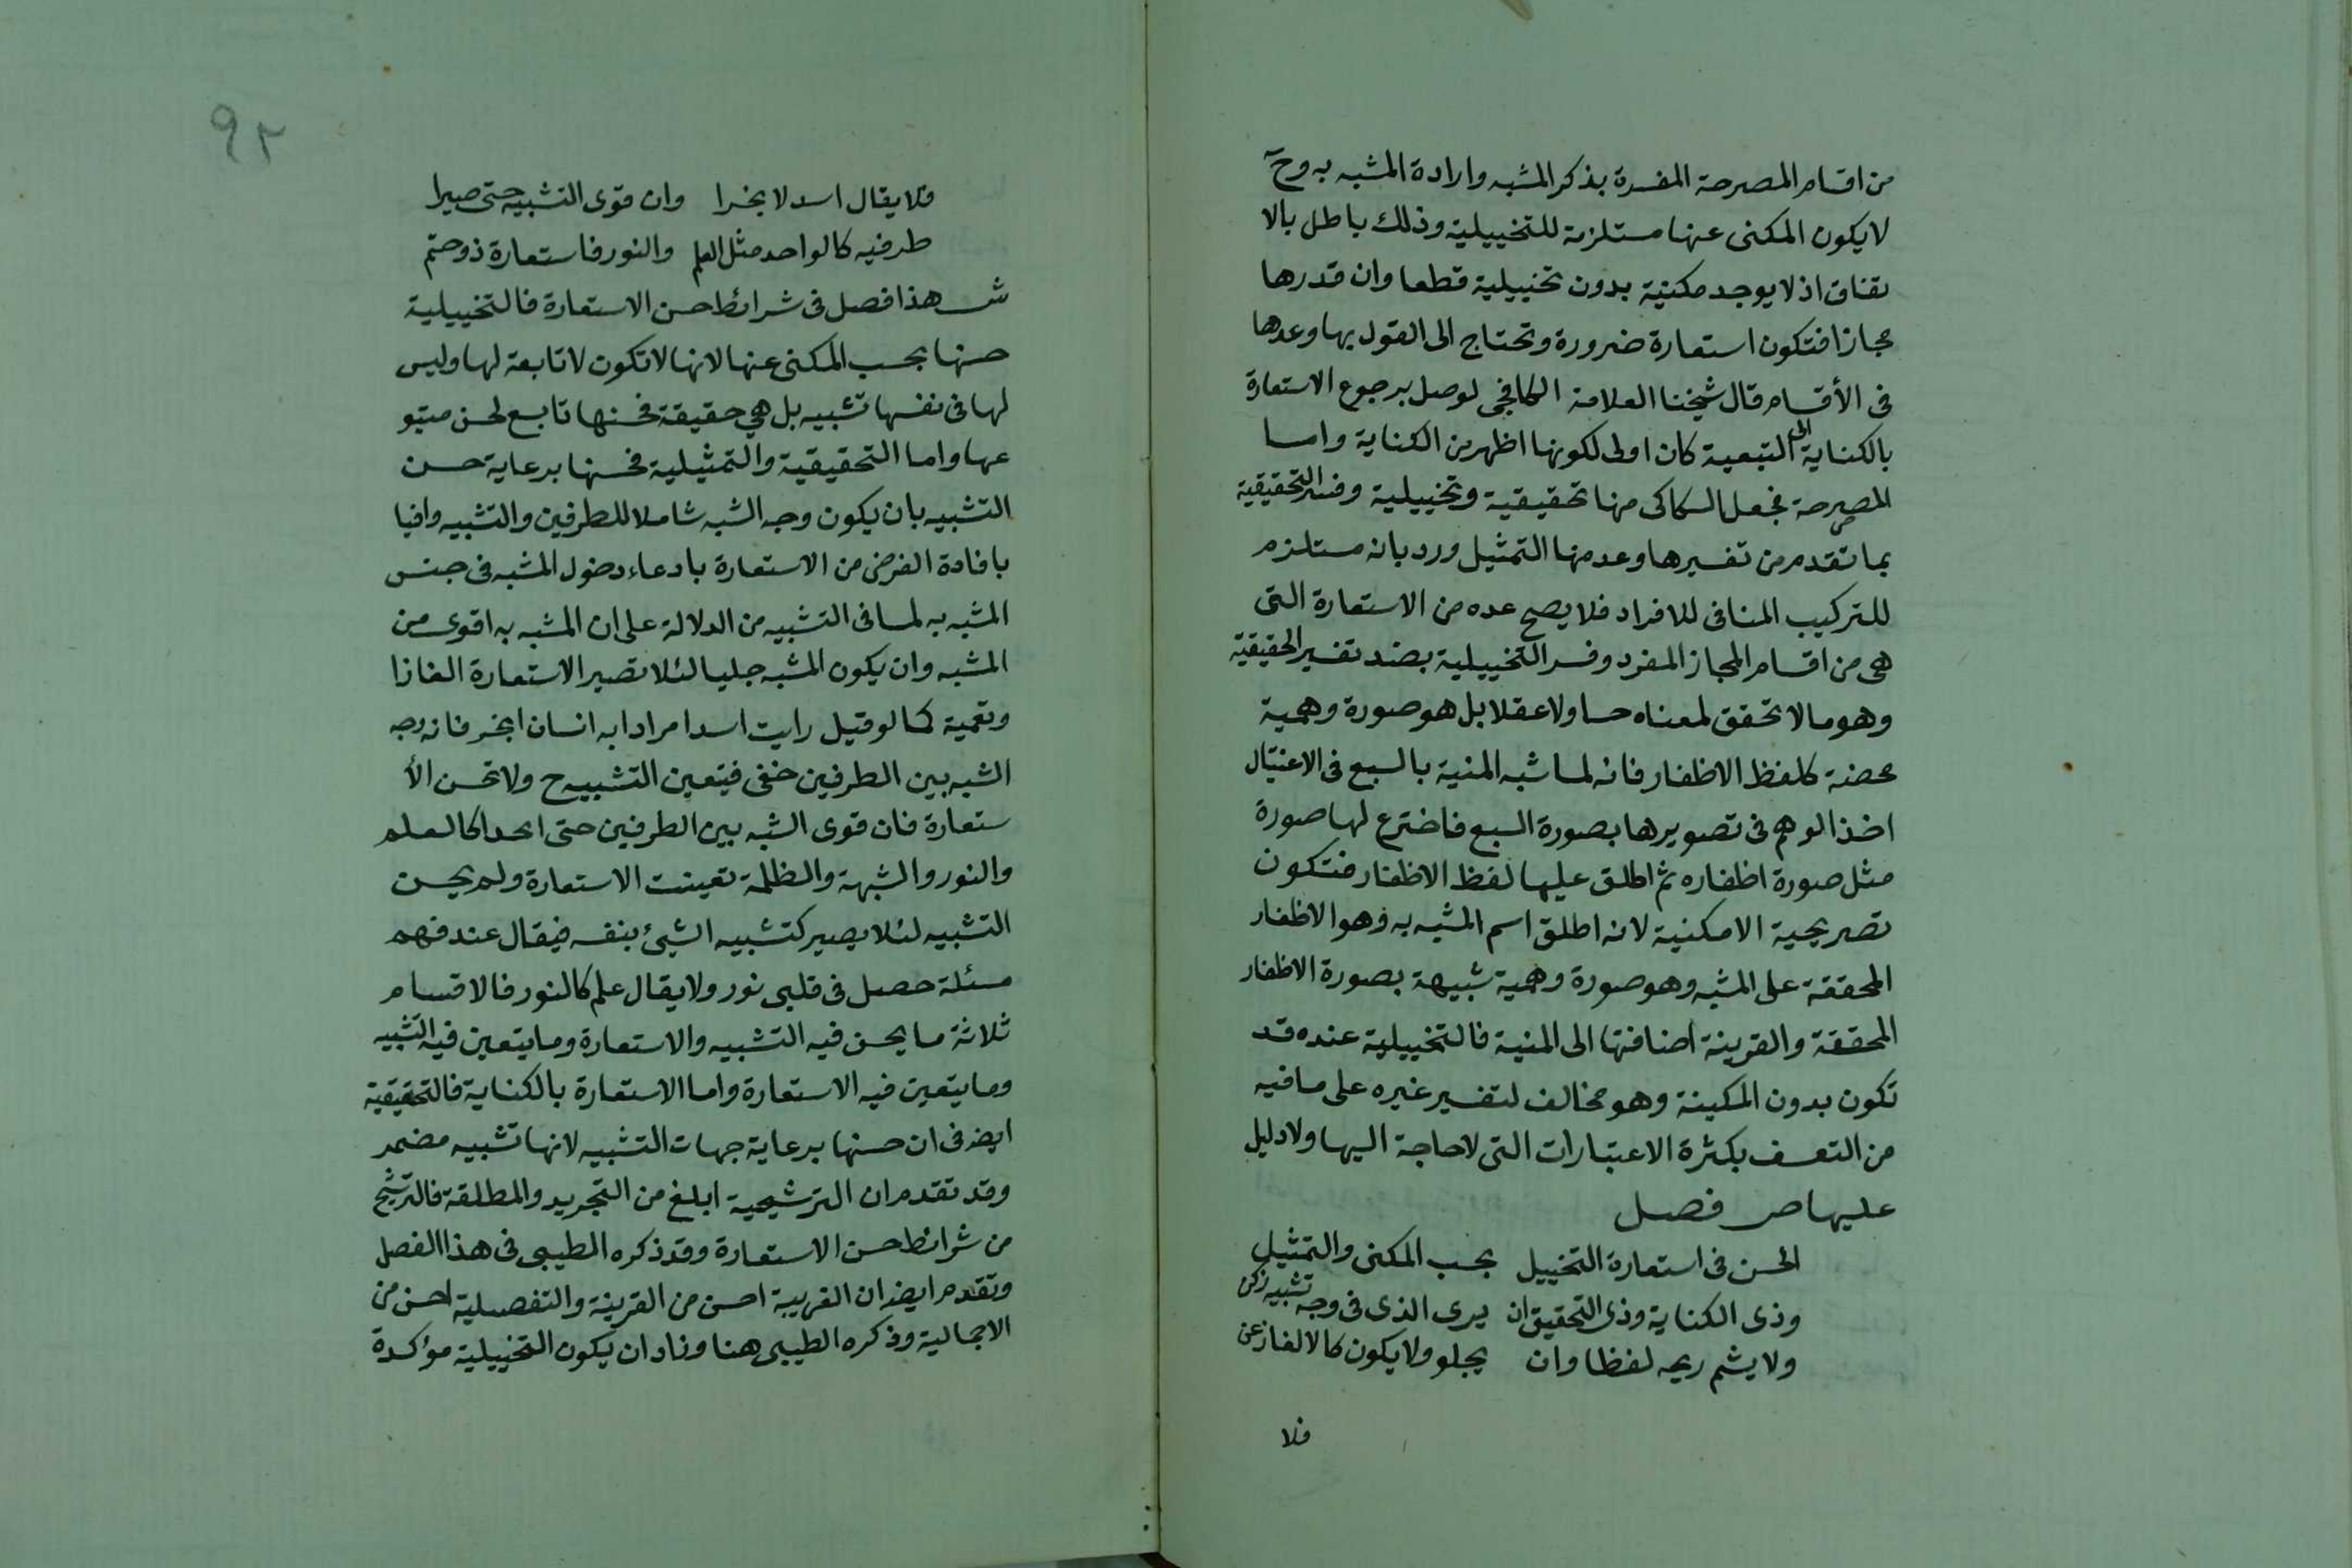 من اقسام المصرحة المفسرة بذكر المشبه وارادة المشبه به وح
لا يكون المكنى عنها مستلزمة للتخييلية وذلك باطل بالا
تفاق اذ لا يوجد مكنية بدون تخييلية قطعا وان قدرها
مجازا فتكون استعارة ضرورة وتحتاج الى القول بها وعدها
فى الأقسام قال شيخنا العلامة الكافجى لوصل برجوع الاستعارة
بالكناية الى التبعية كان اولى لكونها اظهر من الكناية واما
المصرحة فجعل السكاكى منها تحقيقية وتخييلية وفسر التحقيقية
بما تقدم من تفسيرها وعد منها التمثيل ورد بانه مستلزم
للتركيب المنافى للافراد فلا يصح عده من الاستعارة التى
هى من اقسام المجاز المفرد وفسر التخييلية بضد تفسير الحقيقية
وهو ما لا تحقق لمعناه حسا ولا عقلا بل هو صورة وهمية
محضة كلفظ الاظفار فانه لما شبه المنية بالسبع فى الاغتيال
اخذ الوهم فى تصويرها بصورة السبع فاخترع لها صورة
مثل صورة اظفاره ثم اطلق عليها لفظ الاظفار فتكون
تصريحية الا مكنية لانه اطلق اسم المشبه به وهو الاظفار
المحققة على المشبه وهو صورة وهمية شبيهة بصورة الاظفار
المحققة والقرينة اضافتها الى المنية فالتخييلية عنده قد
تكون بدون المكينة وهو مخالف لتفسير غيره على ما فيه
من التعسف بكثرة الاعتبارات التى لا حاجة اليها ولا دليل
عليها ص فصل
الحسن فى استعارة التخييل بحسب المكنى والتمثيل
وذى الكناية وذى التحقيق ان يرى الذى فى وجه تشبيه زكن
ولا يشم ريحه لفظا وان يجلو ولا يكون كالالغاز عن
فلا
٩٢
فلا يقال اسد لا بخرا وان قوى التشبيه حتى صيرا
طرفيه كالواحد مثل العلم والنور فاستعارة ذو حتم
ش هذا فصل فى شرائط حسن الاستعارة فالتخييلية
حسنها بحسب المكنى عنها لانها لا تكون لا تابعة لها وليس
لها فى نفسها تشبيه بل هي حقيقة فحسنها تابع لحسن متبو
عها واما التحقيقية والتمثيلية فحسنها برعاية حسن
التشبيه بان يكون وجه الشبه شاملا للطرفين والتشبيه وافيا
بافادة الغرض من الاستعارة بادعاء دخول المشبه فى جنس
المشبه به لما فى التشبيه من الدلالة على ان المشبه به اقوى من
المشبه وان يكون المشبه جليا لئلا تصير الاستعارة الغازا
وتعمية كما لو قيل رايت اسدا مرادا به انسان ابخر فانه وجه
الشبه بين الطرفين خفى فيتعين التشبيه ح ولا تحسن الأ
ستعارة فان قوى الشبه بين الطرفين حتى اتحدا كالعلم
والنور والشبهة والظلمة تعينت الاستعارة ولم يحسن
التشبيه لئلا يصير كتشبيه الشيئ بنفسه فيقال عند فهم
مسئلة حصل فى قلبى نور ولا يقال علم كالنور فالاقسام
ثلاثة ما يحسن فيه التشبيه والاستعارة وما يتعين فيه التشبيه
وما يتعين فيه الاستعارة واما الاستعارة بالكناية فالتحقيقية
ايضا فى ان حسنها برعاية جهات التشبيه لانها تشبيه مضمر
وقد تقدم ان الترشيحية ابلغ من التجريد والمطلقة فالترشيح
من شرائط حسن الاستعارة وقد ذكره الطيبى فى هذا الفصل
وتقدم ايضا ان الغريبة احسن من القرينة والتفصيلية احسن من
الاجمالية وذكره الطيبى هنا وزاد ان يكون التخييلية مؤكدة